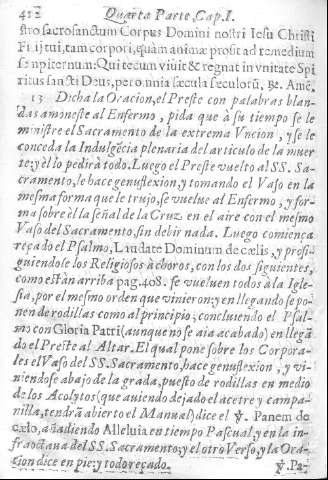 412 Quarta Parte, Cap. I.
stro sacrosanctum Corpus Domini nostri Iesu Christi
Filij tui, tam corpori, quàm animæ prosit ad remedium
sempiternum: Qui tecum viuit & regnat in vnitate Spi
ritus sancti Deus, per omnia sæcula sæculorũ, &c. Amẽ.
13 Dicha la Oracion, el Preste con palabras blan-
das amoneste al Enfermo, pida que à su tiempo se le
ministre el Sacramento de la extrema Vncion, y se le
conceda la Indulgẽcia plenaria del articulo de la muer
te: y èl lo pedirà todo. Luego el Preste vuelto al SS. Sa-
cramento, se hace genuflexion, y tomando el Vaso en la
mesma forma que le trujo, se vuelue al Enfermo, y for-
ma sobre èl la señal de la Cruz en el aire con el mesmo
Vaso del Sacramento, sin debir nada. Luego comiença
reçado el Psalmo, Laudate Dominum de cælis, y prosi-
guiendole los Religiosos à choros, con los dos siguientes,
como estàn arriba pag. 408. se vueluen todos à la Igle-
sia, por el mesmo orden que vinieron: y en llegando se po-
nen de rodillas como al principio; concluiendo el Psal-
mo con Gloria Patri (aunque no se aia acabado) en llegã
do el Preste al Altar. El qual pone sobre los Corpora-
les el Vaso del SS. Sacramento, hace genuflexion, y vi-
niendose abajo de la grada, puesto de rodillas en medio
de los Acolytos (que auiendo dejado el acetre y campa-
nilla, tendrà abierto el Manual) dice el ℣. Panem de
cælo, añadiendo Alleluia en tiempo Pascual, y en la in-
fraoctaua del SS. Sacramento; y el otro Verso, y la Ora-
cion dice en pie: y todo reçado.
℣. Pa-